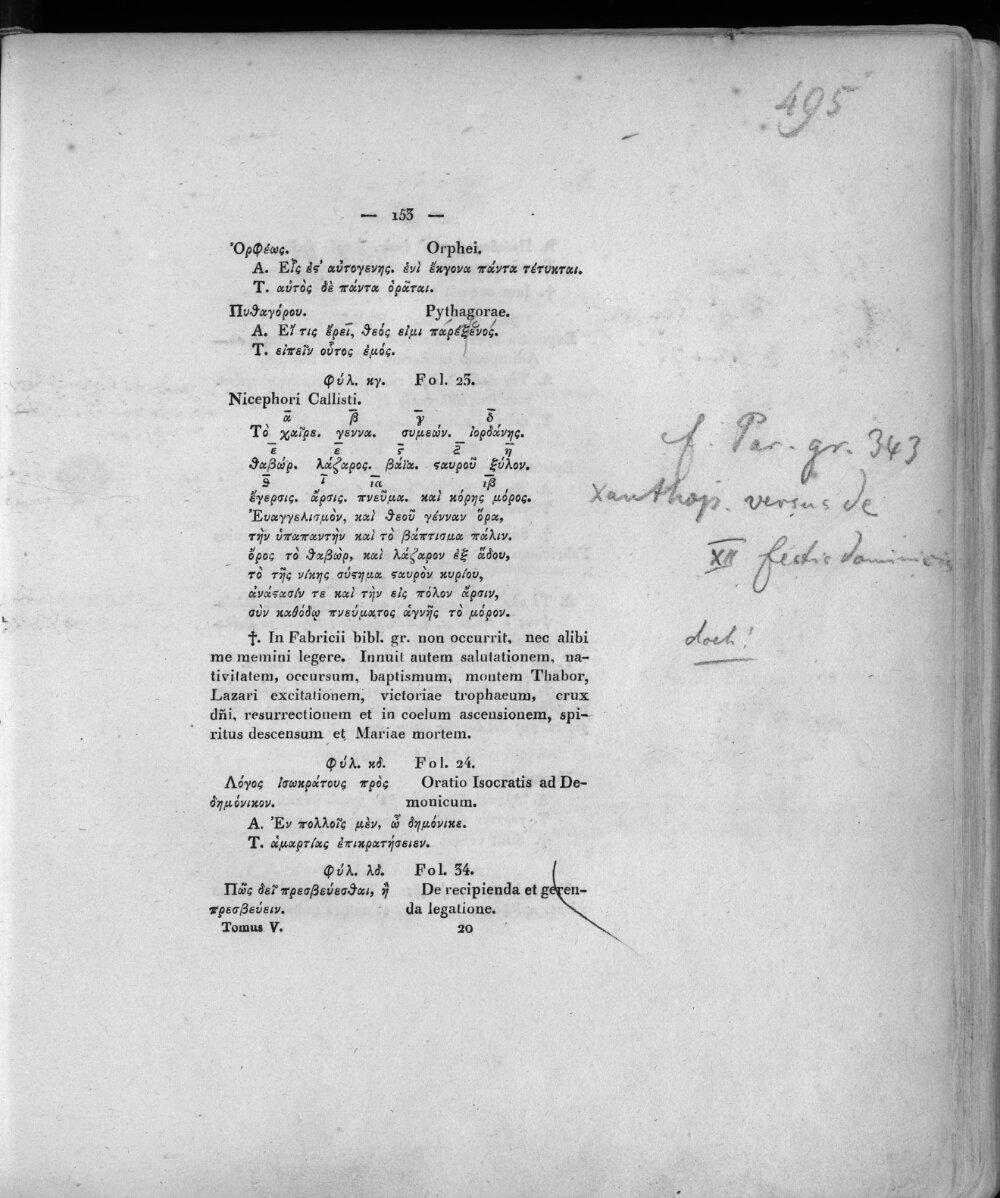 495
— 153 —
Ὀρφέως. Orphei.
Α. Εἷς ἐς' αὐτογενης. ἑνὶ ἔκγονα πάντα τέτυκται.
Τ. αὐτὸς δὲ πάντα ὁρᾶται.
Πυθαγόρου. Pythagorae.
Α. Εἴ τις ἐρεῖ, θεός ειμι παρέξενός.
Τ. ειπεῖν οὗτος ἐμός.
Φύλ. κγ. Fol. 23.
Nicephori Callisti.
α β γ δ
Τὸ χαῖρε. γεννα. συμεών. ἰορδάνης.
ε ε ς ζ η
θαβώρ. λάζαρος. βάϊα. ςαυροῦ ξύλον.
θ ι ια ιβ
ἔγερσις. ἄρσις. πνεῦμα. καὶ κόρης μόρος.
Ἐυαγγελισμὸν, καὶ θεοῦ γένναν ὅρα,
τὴν ὑπαπαντὴν καὶ τὸ βάπτισμα πάλιν.
ὄρος τὸ θαβὼρ, καὶ λάζαρον ἐξ ἅδου,
τὸ τῆς νίκης σύςημα ςαυρὸν κυρίου,
ἀνάςασίν τε καὶ τὴν εἰς πόλον ἄρσιν,
σὺν καθόδῳ πνεύματος ἁγνῆς τὸ μόρον.
†. In Fabricii bibl. gr. non occurrit, nec alibi
me memini legere. Innuit autem salutationem, na-
tivitatem, occursum, baptismum, montem Thabor,
Lazari excitationem, victoriae trophaeum, crux
dñi, resurrectionem et in coelum ascensionem, spi-
ritus descensum et Mariae mortem.
Φύλ. κδ. Fol. 24.
Λόγος Ισωκράτους πρὸς Oratio Isocratis ad De-
δημόνικον. monicum.
Α. Ἐν πολλοῖς μὲν, ὦ δημόνικε.
Τ. ἁμαρτίας ἐπικρατήσειεν.
Φύλ. λδ. Fol. 34.
Πῶς δεῖ πρεσβεύεσθαι, ἢ De recipienda et geren-
πρεσβεύειν. da legatione.
Tomus V. 20
f. Par. gr. 343
Xanthop. versus de
XII festis dominicis
doch!